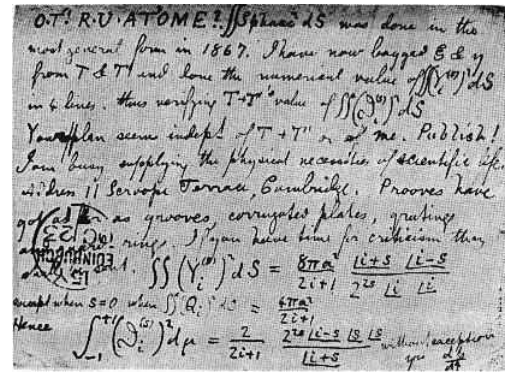 O.T! R.U. AT 'OME? ∬Spharc² dS was done in the
most general form in 1867. I have now bagged ξ & η
from T & T' and done the numerical value of ∬(Y_i^(s))² dS
in 4 lines. thus verifying T + T''s value of ∬(ϑ_i^(s))² dS
Your plan seems indept of T + T' or of me. Publish!
I am busy supplying the physical necessities of scientific life.
Address 11 Scroope Terrace, Cambridge. Prooves have
got as as grooves, corrugated plates, gratings
rings. If you have time for criticism they
sent. ∬(Y_i^(s))² dS = 8πa²/(2i+1) |i+s |i-s / 2^2s |i |i
EDINBURGH 23
except when s=0 when ∬Q_i² dS = 4πa²/(2i+1)
Hence ∫_-1^+1 (ϑ_i^(s))² dμ = 2/(2i+1) 2^2s |i-s |s |s / |i+s without exception
yrs dp/dt